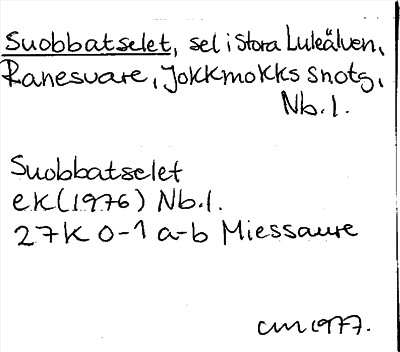 Suobbatselet, sel i Stora Luleälven,
Ranesvare, Jokkmokks snötg,
Nb.l.
Suobbatselet
ek(1976) Nb.l.
27K 0-1 a-b Miessaure
cm 1977.